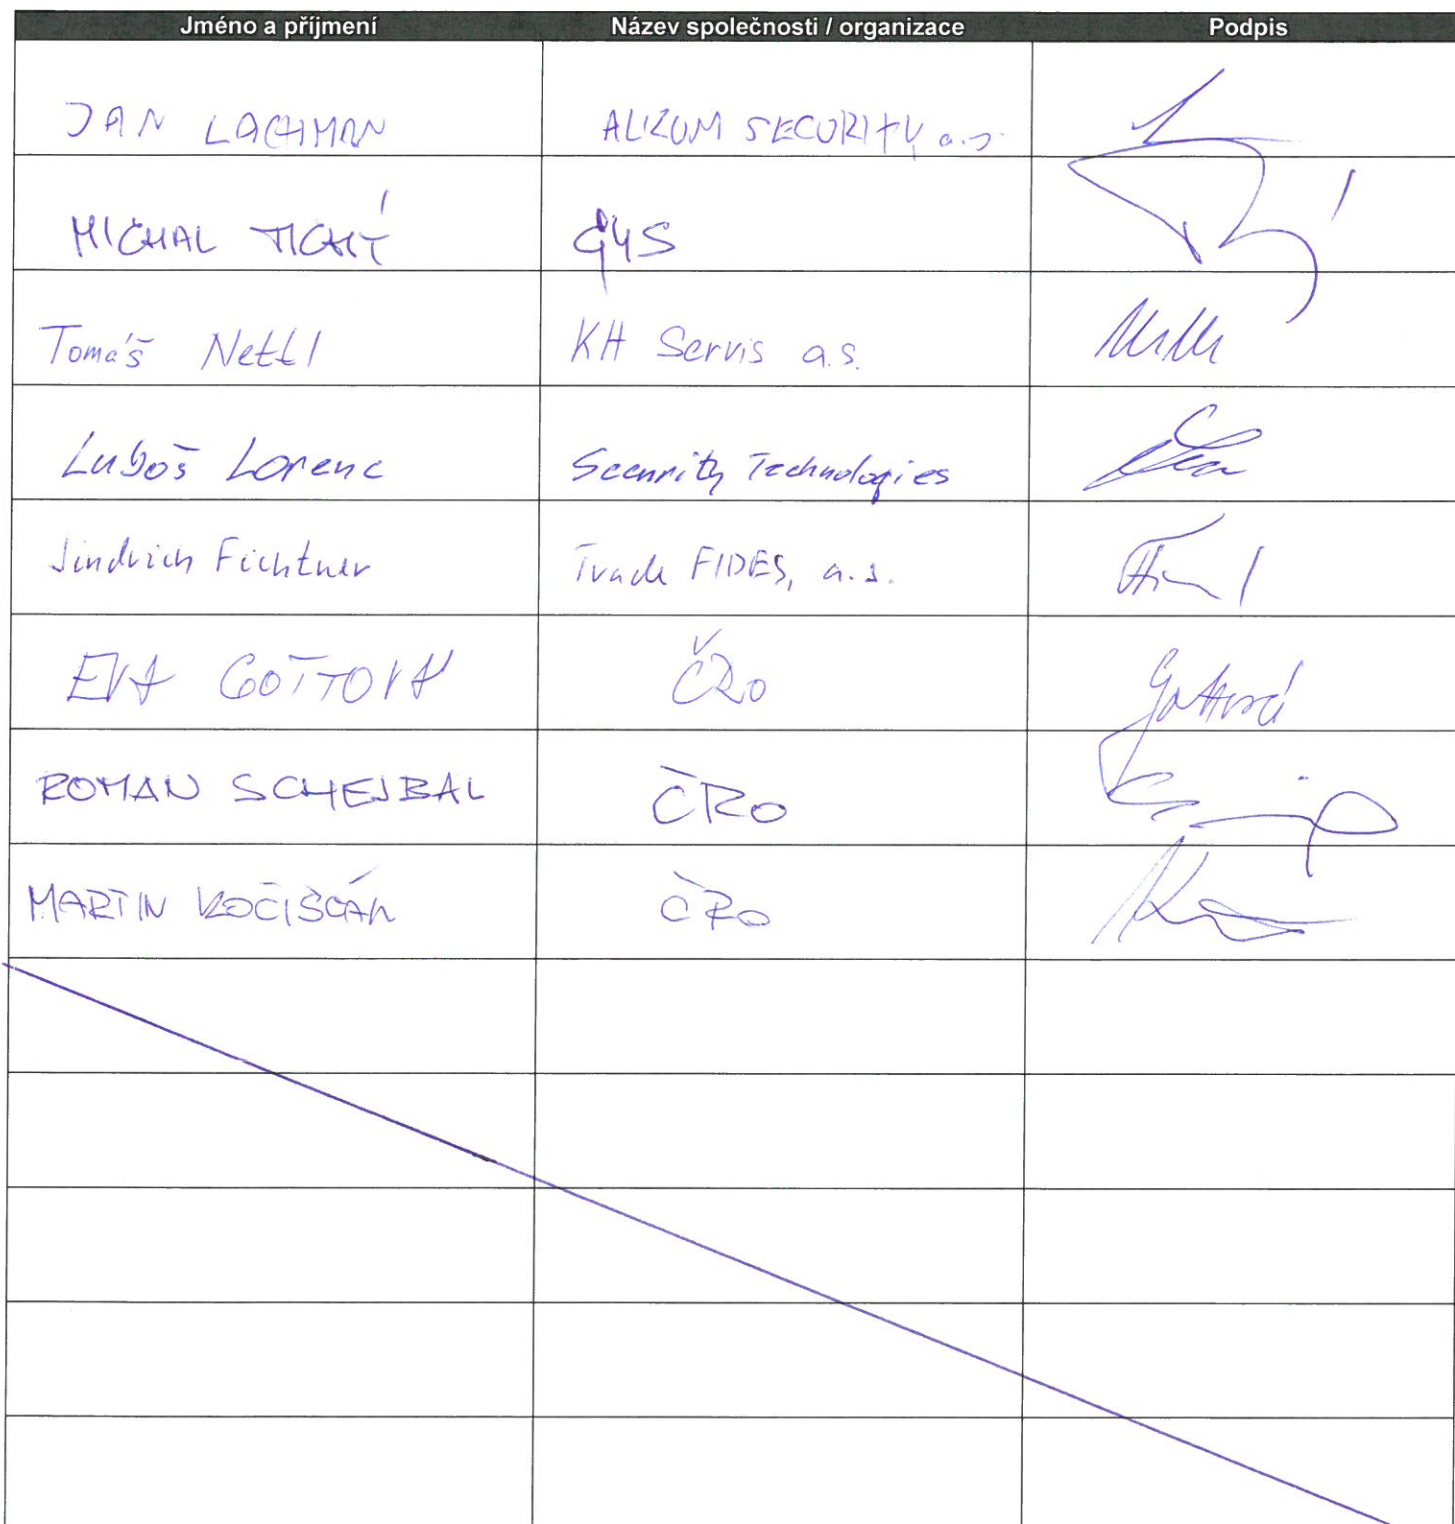 Jméno a příjmení Název společnosti / organizace Podpis
JAN LACHMAN ALKOM SECURITY a.s.
MICHAL TICHÝ G4S
Tomáš Nettl KH Servis a.s.
Luboš Lorenc Security Technologies
Jindrich Fichtner Trade FIDES, a.s.
EVA GOTTOVÁ ČRo Gottová
ROMAN SCHEJBAL ČRo
MARTIN KOČIŠČÁK ČRo